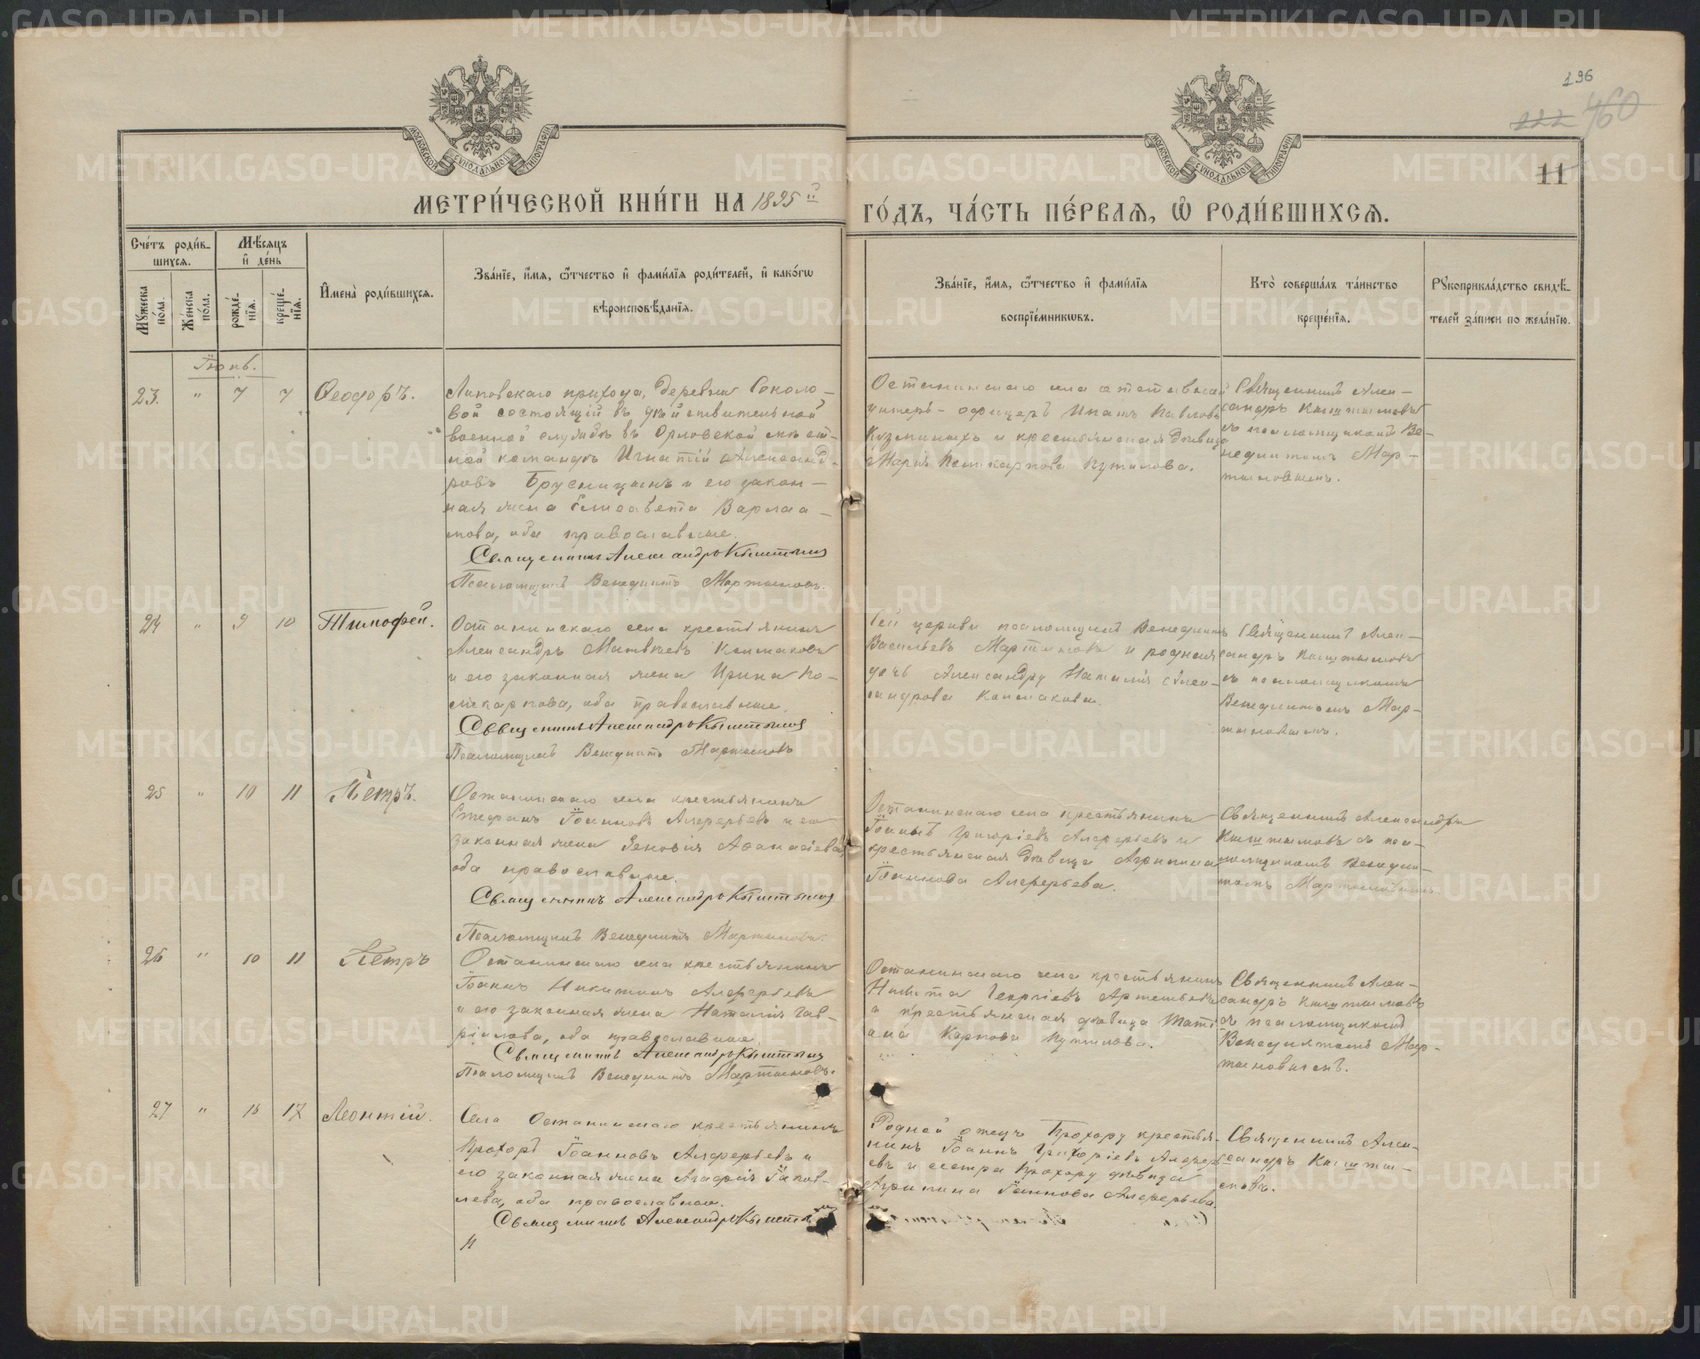 196
222 460
11
МЕТРИ́ЧЕСКОЙ КНИ́ГИ НА 1895й ГО́ДЪ, ЧА́СТЬ ПЕ́РВАЯ, Ѽ РОДИ́ВШИХСЯ.
МОСКОВСКОЙ СѴНОДАЛЬНОЙ ТИПОГРАФІИ
МОСКОВСКОЙ СѴНОДАЛЬНОЙ ТИПОГРАФІИ
Сче́тъ роди́в-
шихся.
Мѣ́сяцъ
и҆ де́нь
Мꙋ́жеска по́ла.
Же́нска по́ла.
рожде́-нїя.
креще́-нїя.
И҆мена̀ роди́вшихся.
Зва́нїе, и҆́мя, ѻ҆́тчество и҆ фами́лїя роди́телей, и҆ како́гѡ
вѣроисповѣ́данїя.
Зва́нїе, и҆́мя, ѻ҆́тчество и҆ фами́лїя
воспрїе́мникѡвъ.
Кто̀ соверша́лъ та́инство
креще́нїя.
Рꙋкоприкла́дство свидѣ́-
телей за́писи по жела́нїю.
Іюнь.
23. " 7 7 Ѳеодоръ.
Липовскаго прихода, деревни Соколо-
вой состоящій въ дѣйствительной
военной службѣ въ Орловской мѣст-
ной командѣ Игнатій Александ-
ровъ Брусницынъ и его закон-
ная жена Елисавета Варлаа-
мова, оба православные.
Священникъ Александръ Кыштымовъ
Псаломщикъ Венедиктъ Мартыновъ.
Останинскаго села отставной
унтеръ-офицеръ Ипатъ Павловъ
Кузминыхъ и крестьянская дѣвица
Марія Поликарпова Путилова.
Священникъ Алек-
сандръ Кыштымовъ
съ псаломщикомъ Ве-
недиктомъ Мар-
тыновымъ.
24 " 9 10 Тимофей.
Останинскаго села крестьянинъ
Александръ Матвѣевъ Колмаковъ
и его законная жена Ирина По-
ликарпова, оба православные.
Священникъ Александръ Кыштымовъ
Псаломщикъ Венедиктъ Мартыновъ
Сей церкви псаломщикъ Венедиктъ
Васильевъ Мартыновъ и родная
дочь Александру Наталія Алек-
сандрова Колмакова.
Священникъ Алек-
сандръ Кыштымовъ
съ псаломщикомъ
Венедиктомъ Мар-
тыновымъ.
25 " 10 11 Петръ.
Останинскаго села крестьянинъ
Стефанъ Іоанновъ Алферьевъ и его
законная жена Зеновія Аѳанасіева,
оба православные.
Священникъ Александръ Кыштымовъ
Псаломщикъ Венедиктъ Мартыновъ.
Останинскаго села крестьянинъ
Іоаннъ Григоріевъ Алферьевъ и
крестьянская дѣвица Агрипина
Іоаннова Алферьева.
Священникъ Александръ
Кыштымовъ съ пса-
ломщикомъ Венедик-
томъ Мартыновымъ.
26 " 10 11 Петръ
Останинскаго села крестьянинъ
Іоаннъ Никитинъ Алферьевъ
и его законная жена Наталія Гав-
ріилова, оба православные.
Священникъ Александръ Кыштымовъ
Псаломщикъ Венедиктъ Мартыновъ.
Останинскаго села крестьянинъ
Никита Георгіевъ Артемьевъ
и крестьянская дѣвица Тати-
ана Карпова Путилова.
Священникъ Алек-
сандръ Кыштымовъ
съ псаломщикомъ
Венедиктомъ Мар-
тыновымъ.
27 " 16 17 Леонтій.
Села Останинскаго крестьянинъ
Прохоръ Іоанновъ Алферьевъ и
его законная жена Агафія Іаков-
лева, оба православные.
Священникъ Александръ Кыштым
Родной отецъ Прохору крестья-
нинъ Іоаннъ Григоріевъ Алферь-
евъ и сестра Прохору дѣвица
Агрипина Іоаннова Алферьева
Священникъ Алек-
сандръ Кышты-
мовъ.